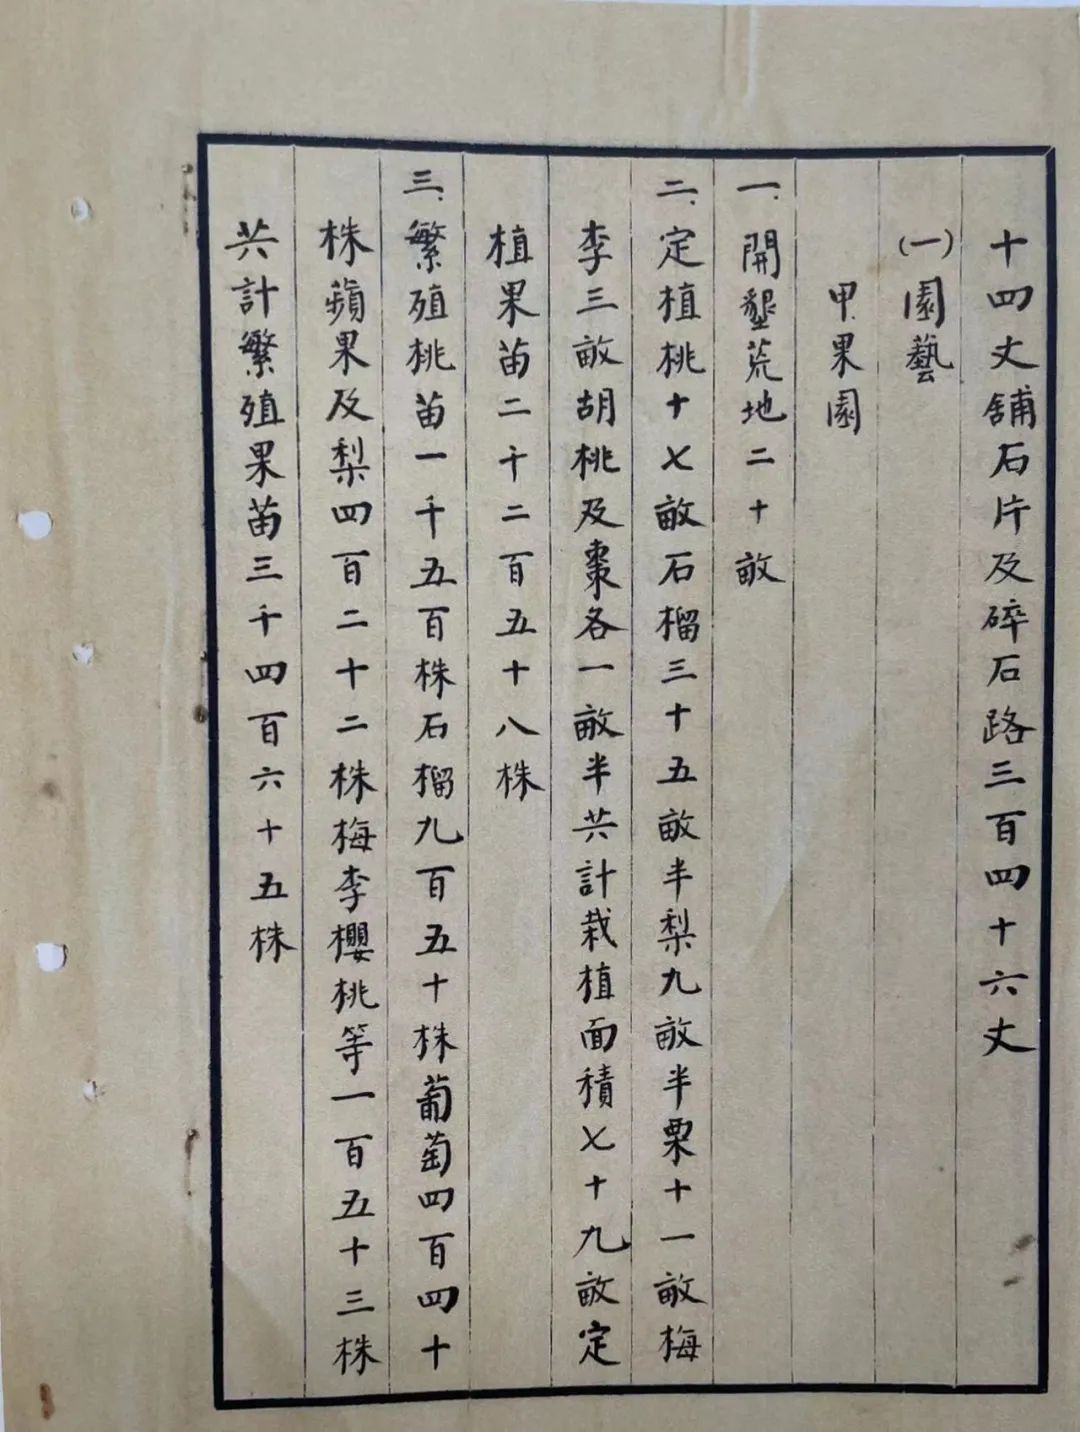 十四丈舖石片及碎石路三百四十六丈
(一)園藝
甲.果園
一.開墾荒地二十畝
二.定植桃十七畝石榴三十五畝半梨九畝半栗十一畝梅
李三畝胡桃及棗各一畝半共計栽植面積七十九畝定
植果苗二千二百五十八株
三.繁殖桃苗一千五百株石榴九百五十株葡萄四百四十
株蘋果及梨四百二十二株梅李櫻桃等一百五十三株
共計繁殖果苗三千四百六十五株